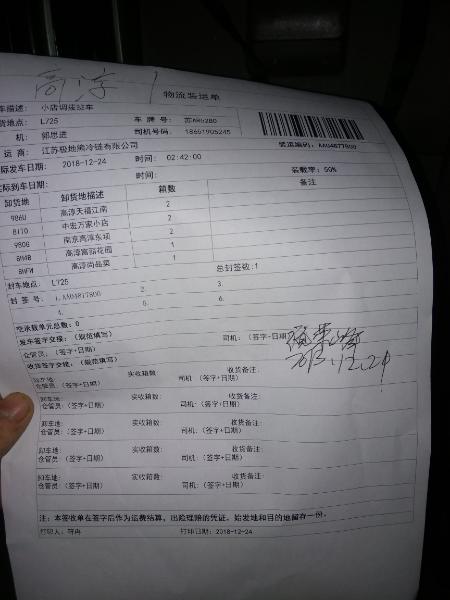 高淳 1
物流装运单
车描述: 小店调度整车
货地点: L725 车 牌 号: 苏AR5280
机: 郭思进 司机号码: 18651905245
运 商: 江苏极地熊冷链有限公司 装运编码: AM04877800
际发车日期: 2018-12-24 时间: 02:42:00 装载率: 50%
实际到车日期: 时间: 备注
卸货地 卸货地描述 箱数
986U 高淳天福江南 2
8110 中宏万家小店 2
980G 南京高淳东坝 2
8HM8 高淳富丽花园 1
8HFW 高淳尚品菜 1
封车地点: L725 总封签数:1
封 签 号: 1.AM04877800 2. 3.
4. 5. 6.
空承载单元总数: 0
发车签字交接: (规范填写)
仓管员: (签字+日期) 司机: (签字+日期)
2018.12.24
收货签字交接: (规范填写)
卸车地: 实收箱数: 收货备注:
仓管员: (签字+日期) 司机: (签字+日期)
卸车地: 实收箱数: 收货备注:
仓管员: (签字+日期) 司机: (签字+日期)
卸车地: 实收箱数: 收货备注:
仓管员: (签字+日期) 司机: (签字+日期)
卸车地: 实收箱数: 收货备注:
仓管员: (签字+日期) 司机: (签字+日期)
卸车地: 实收箱数: 收货备注:
仓管员: (签字+日期) 司机: (签字+日期)
注: 本签收单在签字后作为运费结算, 出险理赔的凭证。始发地和目的地留存一份。
打印人: 符冉 打印日期: 2018-12-24